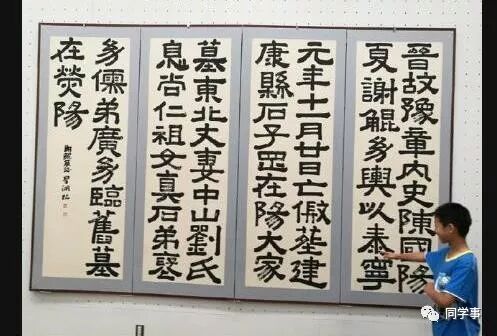 晉故豫章內史陳國陽
夏謝鯤幼輿以泰寧
元年十一月廿日亡假葬建
康縣石子罡在陽大家
墓東北丈妻中山劉氏
息尚仁祖女真石弟裒
幼儒弟廣幼臨舊墓
在熒陽
同学事